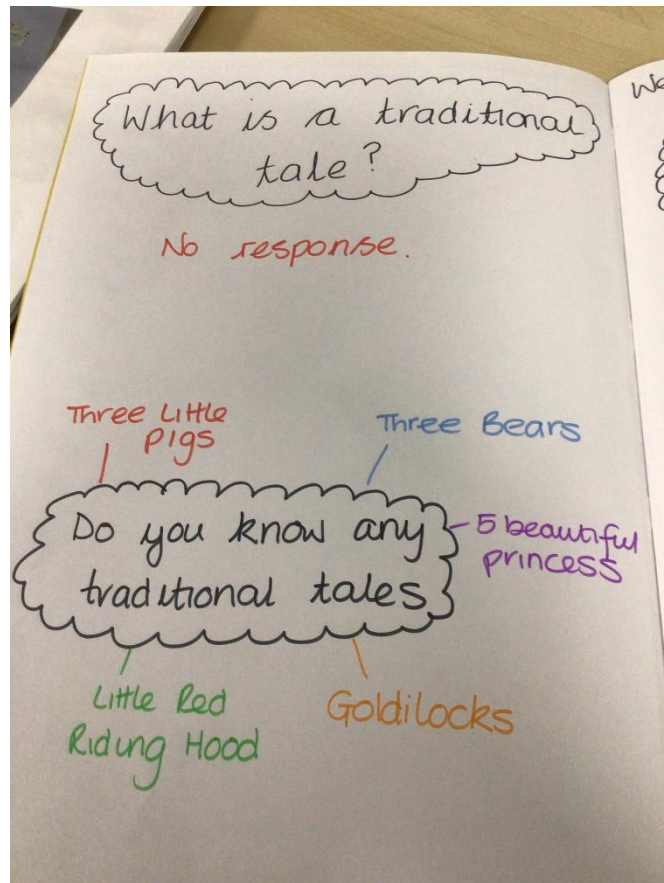 What is a traditional
tale?
No response.
Three Little
Pigs
Three Bears
Do you know any
traditional tales
5 beautiful
princess
Little Red
Riding Hood
Goldilocks